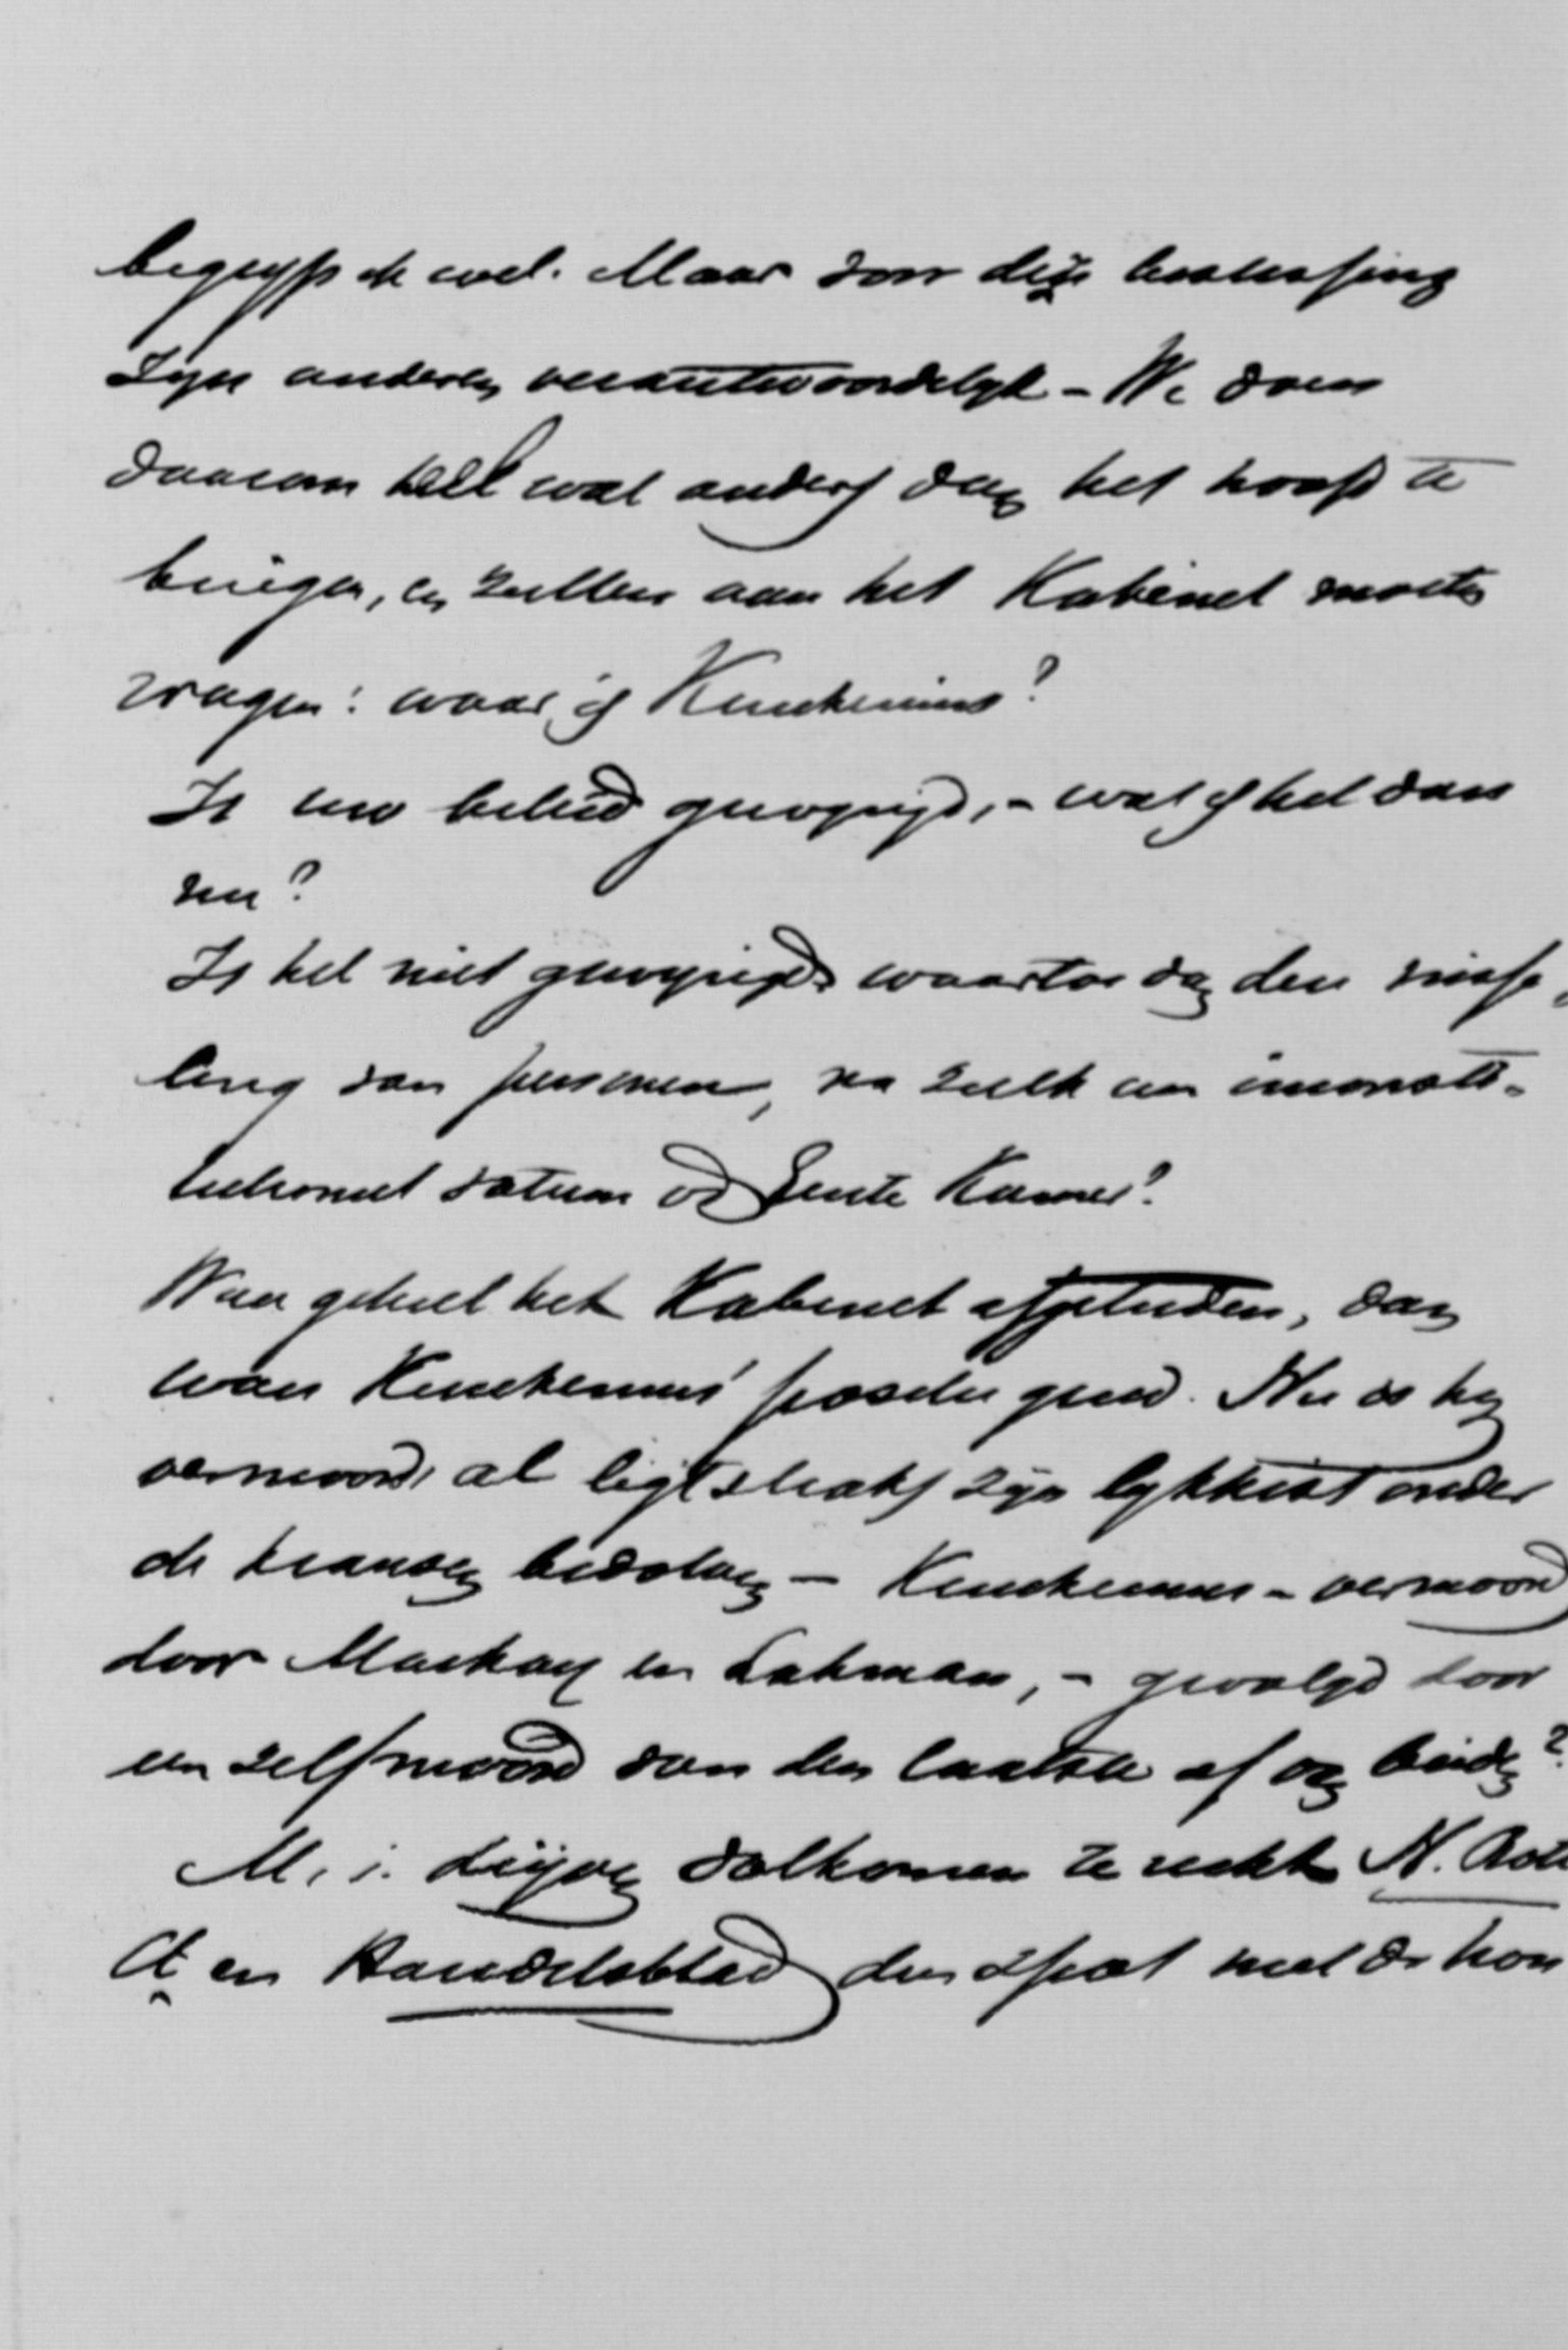 begryp ik wel. Maar voor die beslissing
zyn anderen verantwoordelyk - We doen
daarom heel wat anders dan het hoofd te
buigen, en zullen aan het Kabinet moeten
vragen: waar is Keuchenius?
Is uw beleid gewyzigd, - wat is het dan
nu?
Is het niet gewyzigd waartoe dan den wisse,
ling van personen, na zulk een inconsti-
tutioneel votum v.d. Eerste Kamer?
Waar geheel het Kabinet afgetreden, dan
ware Keuchenius' positie goed. Nu is hy
vermoord, al ligt straks zyn lykkist onder
de kransen bedolven - Keuchenius - vermoord
door Mackay en Lohman, - gevolgd door
een zelfmoord van den laatste of van beiden?
M. i. dryven volkomen te recht N. Rott
Ct en Handelsblad den spot met de hou